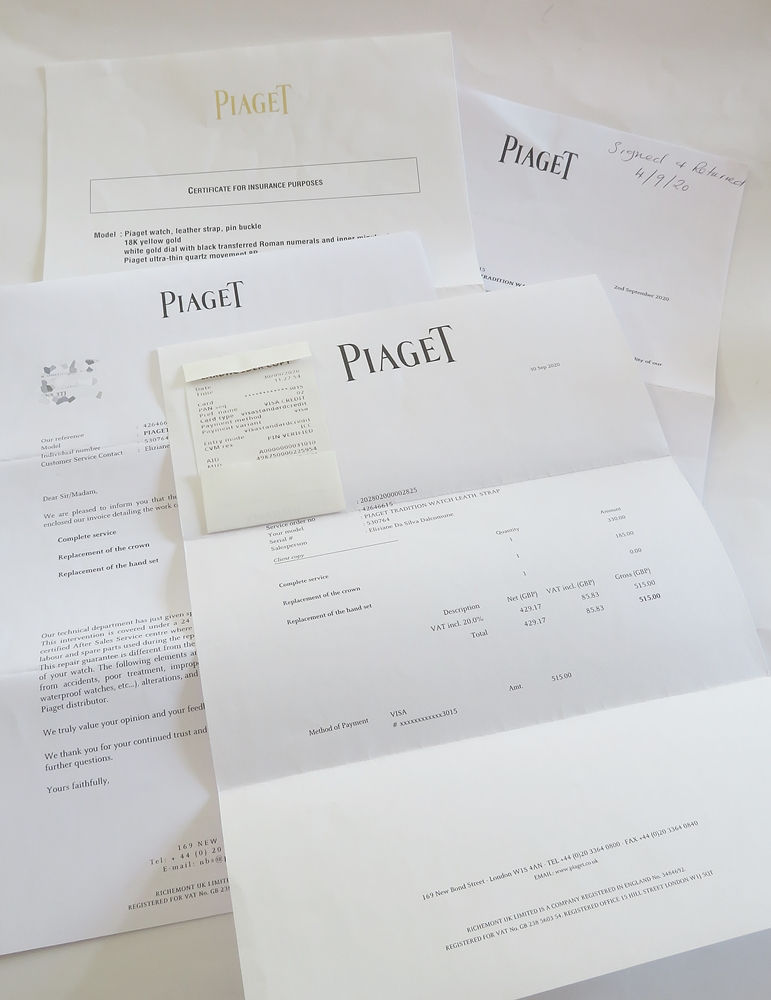 PIAGET
CERTIFICATE FOR INSURANCE PURPOSES
Model : Piaget watch, leather strap, pin buckle
18K yellow gold
white gold dial with black transferred Roman numerals and inner
Piaget ultra-thin quartz movement
PIAGET
Signed & Returned
4/9/20
2nd September 2020
TRADITION
of our
PIAGET
Our reference : 426466
Model : PIAGET
Individual number : 530764
Customer Service Contact : Eliziane
Dear Sir/Madam,
We are pleased to inform you that the
enclosed our invoice detailing the work
Complete service
Replacement of the crown
Replacement of the hand set
Our technical department has just given
This intervention is covered under a 24
certified After Sales Service centre where
labour and spare parts used during the
This repair guarantee is different from the
of your watch. The following elements
from accidents, poor treatment,
waterproof watches, etc...), alterations, and
Piaget distributor.
We truly value your opinion and your
We thank you for your continued trust and
further questions.
Yours faithfully,
169 NEW
Tel: + 44 (0) 20
E-mail:
RICHEMONT UK
REGISTERED FOR VAT No. GB 238
PIAGET
30 Sep 2020
COPY
Date 30/09/2020
Time 11:27:54
Card ************3015
PAN seq. 02
Pref. name VISA CREDIT
Card type visastandardcredit
Payment method visa
Payment variant visastandardcredit
Entry mode ICC
CVM res. PIN VERIFIED
AID A0000000031010
MID
: 202802000002825
Service order no : 42646615
Your model : PIAGET TRADITION WATCH LEATH. STRAP
Serial # : 530764
Salesperson : Eliziane Da Silva Dalcomune
Client copy
Quantity Amount
Complete service 1 330.00
Replacement of the crown 1 185.00
Replacement of the hand set 1 0.00
Description Net (GBP) VAT incl. (GBP) Gross (GBP)
VAT incl. 20.0% 429.17 85.83 515.00
Total 429.17 85.83 515.00
Amt. 515.00
Method of Payment VISA
# xxxxxxxxxxxx3015
169 New Bond Street - London W1S 4AN - TEL +44 (0)20 3364 0800 - FAX +44 (0)20 3364 0840
EMAIL: www.piaget.co.uk
RICHEMONT UK LIMITED IS A COMPANY REGISTERED IN ENGLAND No. 3484692.
REGISTERED FOR VAT No. GB 238 5603 54. REGISTERED OFFICE 15 HILL STREET LONDON W1J 5QT